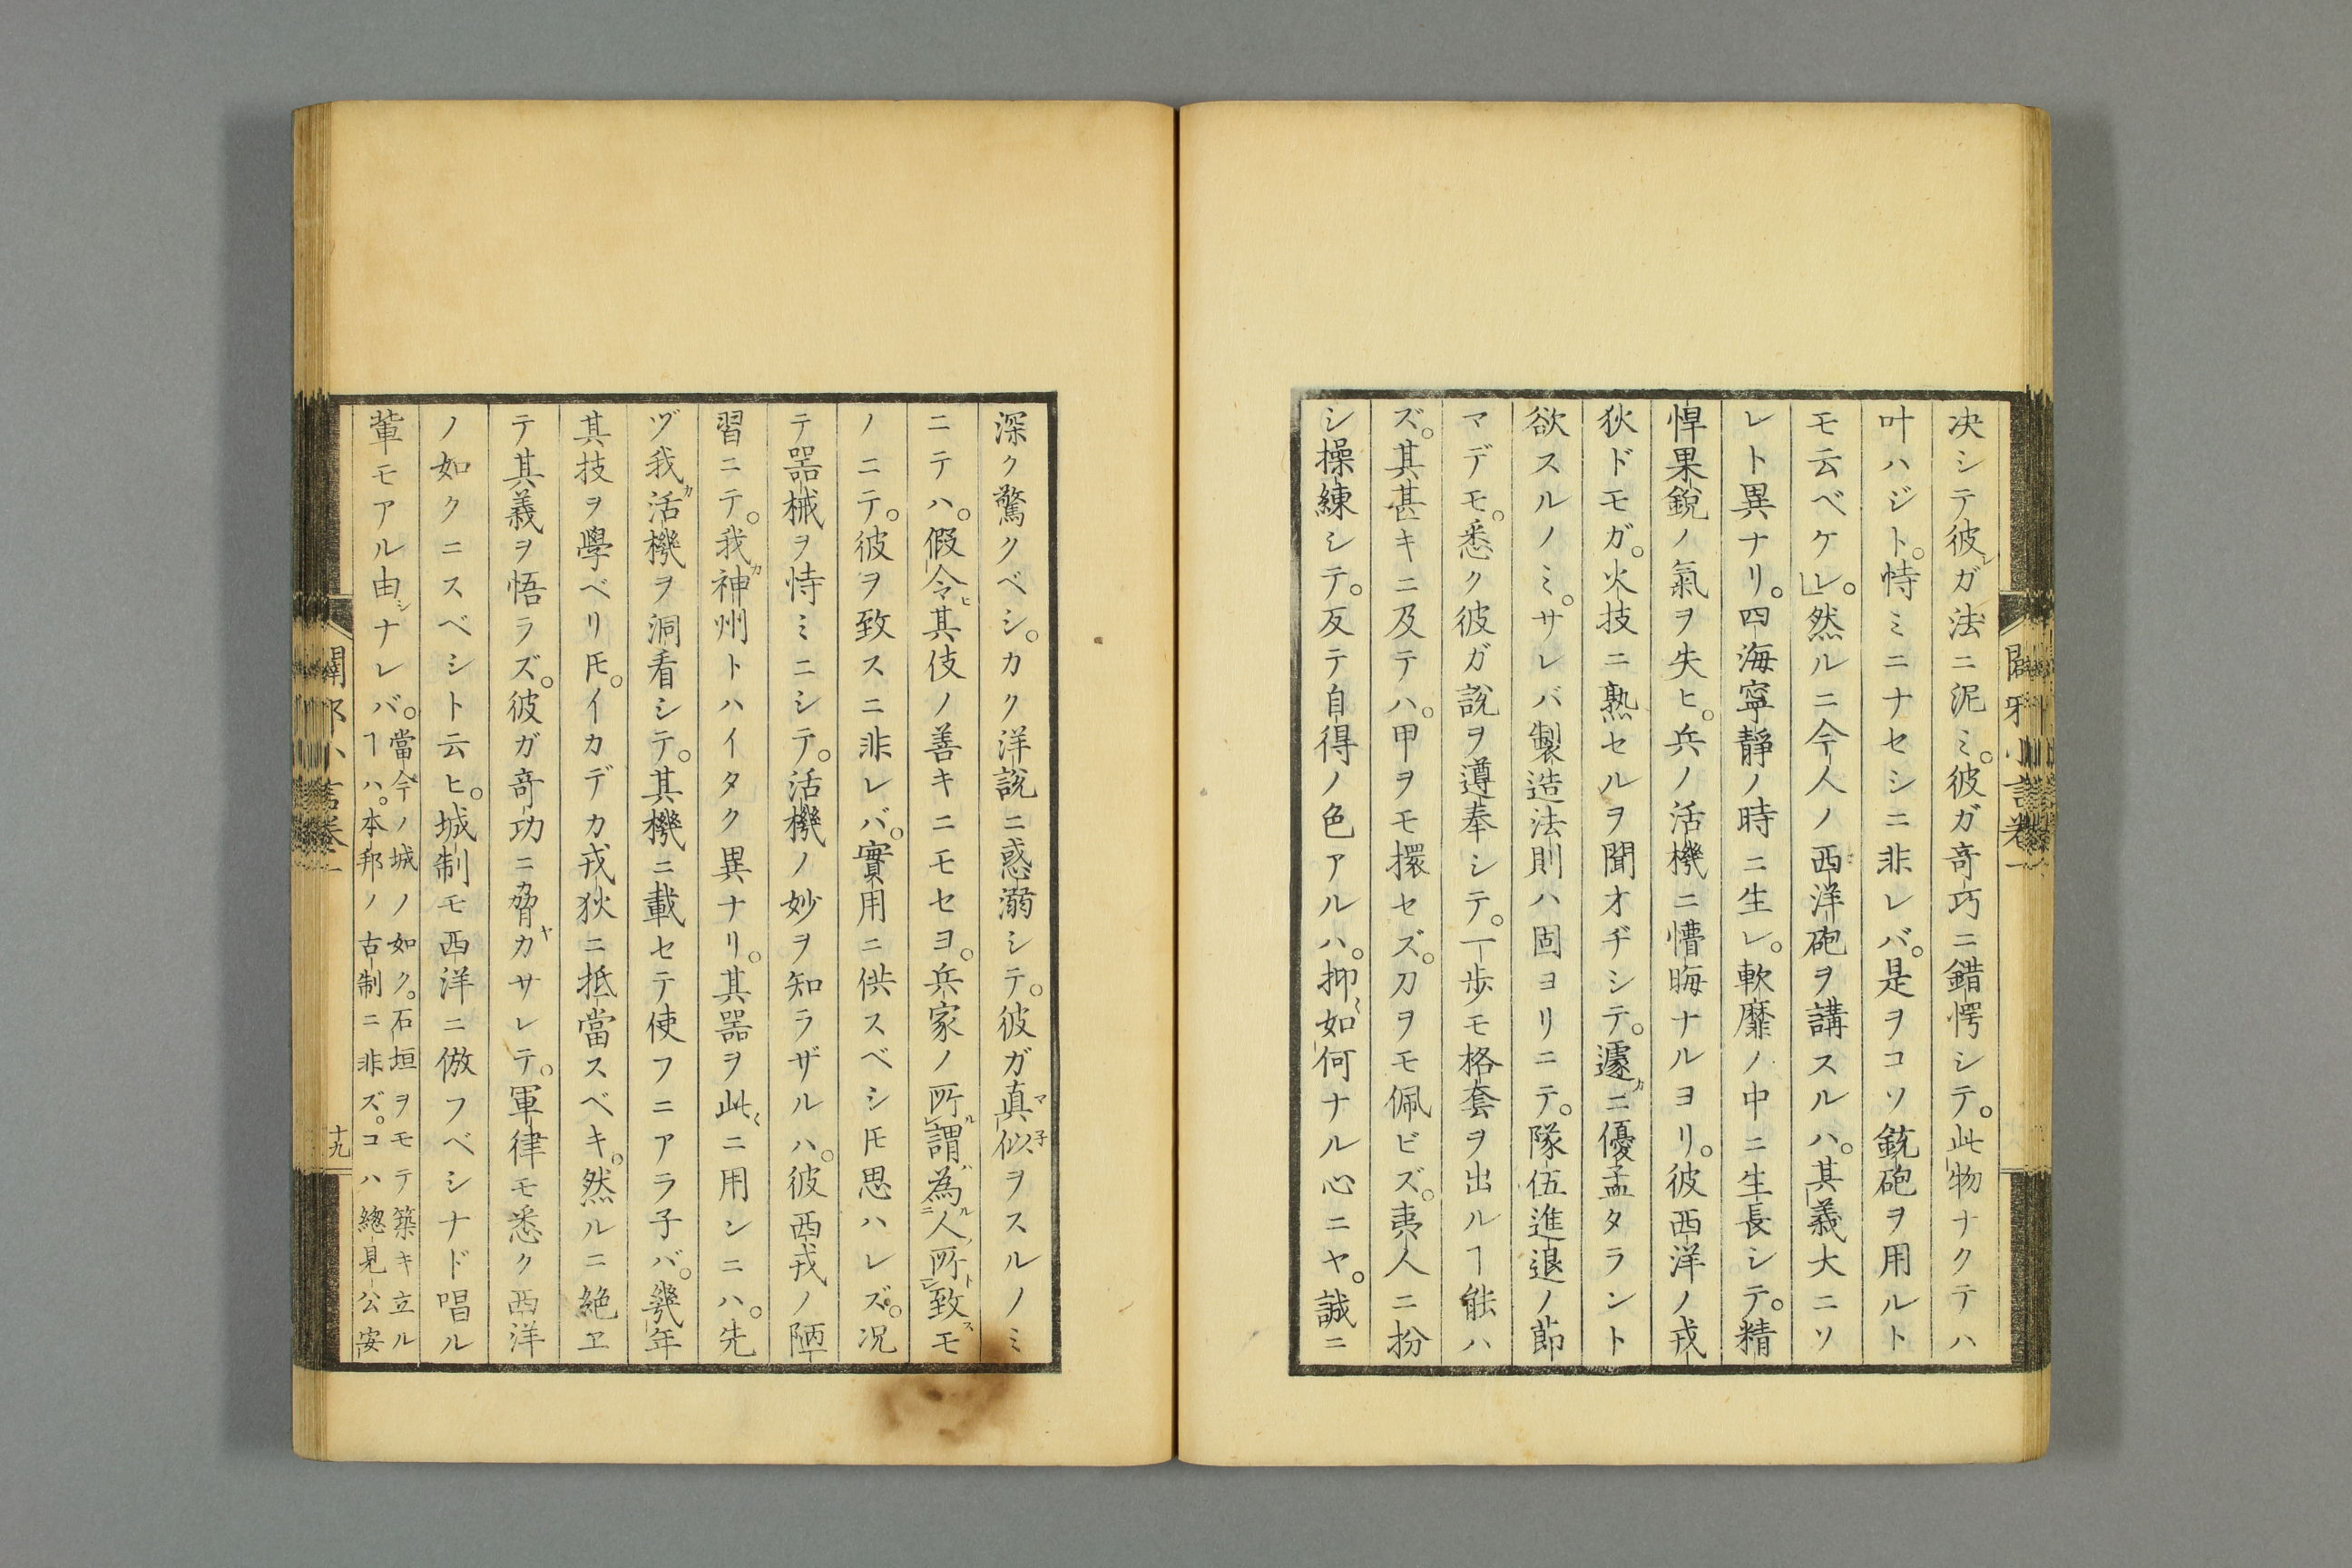 决シテ彼ガ法ニ泥ミ。彼ガ奇巧ニ錯愕シテ。此物ナクテハ
叶ハジト。恃ミニナセシニ非レバ。是ヲコソ銃砲ヲ用ルト
モ云ベケレ。然ルニ今人ノ西洋砲ヲ講スルハ。其義大ニソ
レト異ナリ。四海寧靜ノ時ニ生レ。軟靡ノ中ニ生長シテ。精
悍果鋭ノ氣ヲ失ヒ。兵ノ活機ニ懵晦ナルヨリ。彼西洋ノ戎
狄ドモガ。火技ニ熟セルヲ聞オヂシテ。遽ニ優孟タラント
欲スルノミ。サレバ製造法則ハ固ヨリニテ。隊伍進退ノ節
マデモ。悉ク彼ガ說ヲ遵奉シテ。一歩モ格套ヲ出ルヿ能ハ
ズ。其甚キニ及テハ。甲ヲモ擐セズ。刀ヲモ佩ビズ。夷人ニ扮
シ操練シテ。反テ自得ノ色アルハ。抑如何ナル心ニヤ。誠ニ
闢邪小言卷一
深ク驚クベシ。カク洋說ニ惑溺シテ。彼ガ真似ヲスルノミ
ニテハ。假令其伎ノ善キニモセヨ。兵家ノ所謂為人所致モ
ノニテ。彼ヲ致スニ非レバ。實用ニ供スベシ𪜈思ハレズ。况
テ器械ヲ恃ミニシテ。活機ノ妙ヲ知ラザルハ。彼西戎ノ陋
習ニテ。我神州トハイタク異ナリ。其器ヲ此ニ用シニハ。先
ヅ我活機ヲ洞看シテ。其機ニ載セテ使フニアラ子バ。幾年
其技ヲ學ベリ𪜈。イカデカ戎狄ニ抵當スベキ。然ルニ絶ヱ
テ其義ヲ悟ラズ。彼ガ奇功ニ脅カサレテ。軍律モ悉ク西洋
ノ如クニスベシト云ヒ。城制モ西洋ニ倣フベシナド唱ル
輩モアル由ナレバ。當今ノ城ノ如ク。石垣ヲモテ築キ立ル
ヿハ。本邦ノ古制ニ非ズ。コハ總見公安
闢邪小言卷一
十九